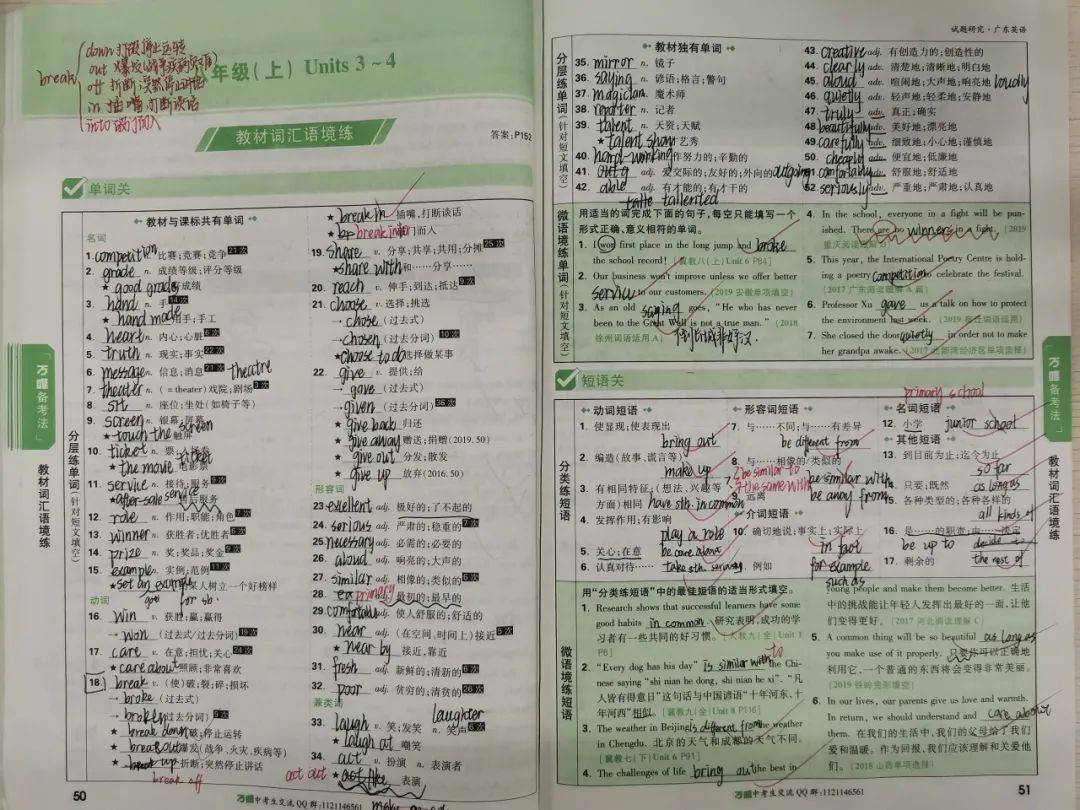 break
down 打破;停止运转
out 爆发(战争疾病灾害)
off 折断;突然停止讲话
in 插嘴,打断谈话
into 破门而入
年级(上) Units 3 ~ 4
教材词汇语境练
答案:P152
单词关
分层练单词(针对短文填空)
教材与课标共有单词
名词
1. competition n. 比赛;竞赛;竞争 21次
2. grade n. 成绩等级;评分等级
★ good grades 好成绩
3. hand n. 手 14次
★ hand made 用手;手工
4. heart n. 内心;心脏 6次
5. truth n. 现实;事实 22次
6. message n. 信息;消息 21次 theatre
7. theater n. (= theater) 戏院;剧场 3次
8. n. 座位;坐处(如椅子等)
9. screen n. 银幕;屏幕
★ touch the screen 触屏
10. ticket n. 票;入场券
★ the movie ticket 电影票
11. service n. 接待;服务
★ after-sale service 售后服务
12. role n. 作用;职能;角色 7次
13. winner n. 获胜者;优胜者 6次
14. prize n. 奖;奖品;奖金 9次
15. example n. 实例;范例 11次
★ set an example 某人树立一个好榜样
for sb.
动词
16. win v. 获胜;赢;赢得
→ won (过去式/过去分词) 19次
17. care v. 在意;担忧;关心 24次
★ care about 照顾;非常喜欢
18. break v. (使)破;裂;碎;损坏
→ broke (过去式)
→ broken (过去分词) 9次
★ break down 破;停止运转
★ break out 爆发(战争、火灾、疾病等)
★ break up 折断;突然停止讲话
break off
★ break in 插嘴,打断谈话
★ break into 破门而入
19. share v. 分享;共享;共用;分摊 25次
★ share with 和……分享……
20. reach v. 伸手;到达;抵达 9次
21. choose v. 选择;挑选
→ chose (过去式)
→ chosen (过去分词) 10次
★ choose to do 选择做某事
22. give v. 提供;给
→ gave (过去式)
→ given (过去分词) 36次
★ give back 归还
★ give away 赠送;捐赠(2019. 50)
★ give out 分发;散发
★ give up 放弃(2016. 50)
形容词
23. excellent adj. 极好的;了不起的
24. serious adj. 严肃的;稳重的 7次
25. necessary adj. 必需的;必要的
26. aloud adj. 响亮的;大声的
27. similar adj. 相像的;类似的 6次
28. primary adj. 最初的;最早的
29. comfortable adj. 使人舒服的;舒适的
30. near adj. (在空间、时间上)接近 5次
★ near by 接近,靠近
31. fresh adj. 新鲜的;清新的 6次
32. poor adj. 贫穷的;清贫的 26次
兼类词
33. laugh v. 笑;发笑 laughter n. 笑声 6次
★ laugh at 嘲笑
34. act v. 扮演 n. 表演者
act out ★ act like 表演
50
万唯中考生交流 QQ 群:1121146561
试题研究·广东英语
教材独有单词
35. mirror n. 镜子
36. saying n. 谚语;格言;警句
37. magician n. 魔术师
38. reporter n. 记者
39. talent n. 天资;天赋
★ talent show 艺秀
40. hard-working 工作努力的;辛勤的
41. outg adj. 爱交际的;友好的;外向的 outgoing
42. able adj. 有才能的;有才干的
talented
43. creative adj. 有创造力的;创造性的
44. clearly adv. 清楚地;清晰地;明白地
45. aloud adv. 喧闹地;大声地;响亮地 loudly
46. quietly adv. 轻声地;轻柔地;安静地
47. truly adv. 真正;确实
48. beautifully adv. 美好地;漂亮地
49. carefully adv. 细致地;小心地;谨慎地
50. cheaply adv. 便宜地;低廉地
51. comfortably adv. 舒服地;舒适地
52. seriously adv. 严重地;严肃地;认真地
微语境练单词(针对短文填空)
用适当的词完成下面的句子,每空只能填写一个
形式正确、意义相符的单词。
1. I won first place in the long jump and broke
the school record! [冀教八(上) Unit 6 P84]
2. Our business won't improve unless we offer better
service to our customers. [2019 安徽单项填空]
3. As an old saying goes, "He who has never
been to the Great Wall is not a true man." [2018
徐州词语运用 A] 不到长城非好汉.
4. In the school, everyone in a fight will be pun-
ished. There are no winners in a fight. [2019
重庆阅读
5. This year, the International Poetry Centre is hold-
ing a poetry competition celebrate the festival.
[2017 广东阅读理解 A 篇]
6. Professor Xu gave us a talk on how to protect
the environment last week. [2019 宿迁词语运用]
7. She closed the door quietly in order not to make
her grandpa awake. [2017 北部湾经济区单项选择]
短语关
分类练短语
动词短语
1. 使显现;使表现出
bring out
2. 编造(故事、谎言等)
make up
3. 有相同特征;(想法、兴趣等
方面)相同 have sth. in common
4. 发挥作用;有影响
play a role
5. 关心;在意 be care about
6. 认真对待…… take sth. seriously
形容词短语
7. 与……不同;与……有差异
be different from
8. 与……相像的/类似的
be similar to
the same with be similar with
9. 远离 be away from
介词短语
10. 确切地说;事实上;实际上
in fact
例如 for example
such as
primary school
名词短语
12. 小学 junior school
其他短语
13. 到目前为止;迄今为止
so far
14. 只要;既然 as long as
15. 各种类型的;各种各样的
all kinds of
16. 是……的职责;由……决定
be up to decide to
17. 剩余的 the rest of
微语境练短语
用"分类练短语"中的最佳短语的适当形式填空。
1. Research shows that successful learners have some
good habits in common. 研究表明,成功的学
习者有一些共同的好习惯。[人教九(全) Unit 1
P6]
2. "Every dog has his day" is similar with to the Chi-
nese saying "shi nian he dong, shi nian he xi". "凡
人皆有得意日"这句话与中国谚语"十年河东,十
年河西"相似。[冀教九(全) Unit 8 P116]
3. The weather in Beijing is different from the weather
in Chengdu. 北京的天气和成都的天气不同。
[冀教七(下) Unit 6 P81]
4. The challenges of life bring out the best in
young people and make them become better. 生活
中的挑战能让年轻人发挥出最好的一面,让他
们变得更好。[2017 河北阅读理解 C]
5. A common thing will be so beautiful as long as
you make use of it properly. 只要你可以正确地
利用它,一个普通的东西将会变得非常美丽。
[2019 铁岭完形填空]
6. In our lives, our parents give us love and warmth.
In return, we should understand and care about
them. 在我们的生活中,我们的父母给予了我们
爱和温暖。作为回报,我们应该理解和关爱他
们。[2018 山西单项选择]
51
万唯中考生交流 QQ 群:1121146561
万唯备考法
教材词汇语境练
万唯备考法
教材词汇语境练